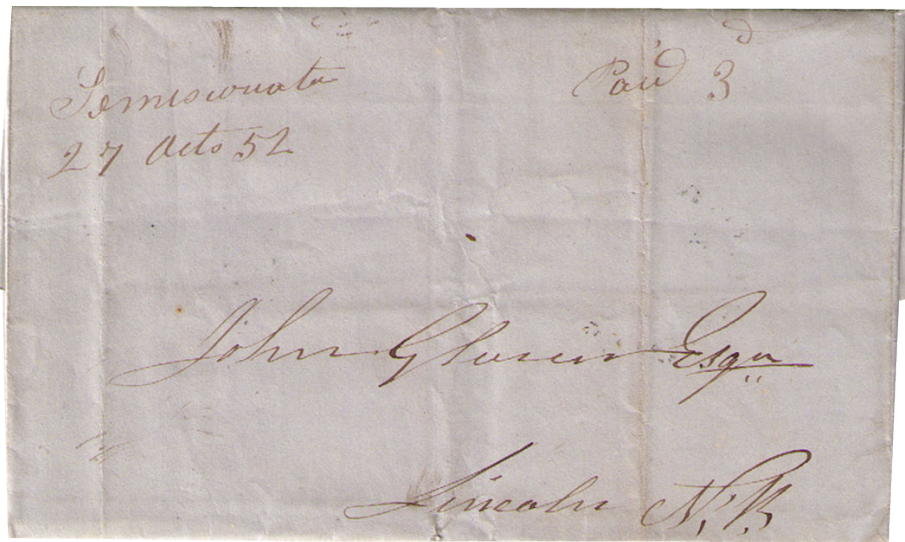 Temiscouata
27 Octo 52
Paid 3d
John Glover Esqr
Lincoln N.B.